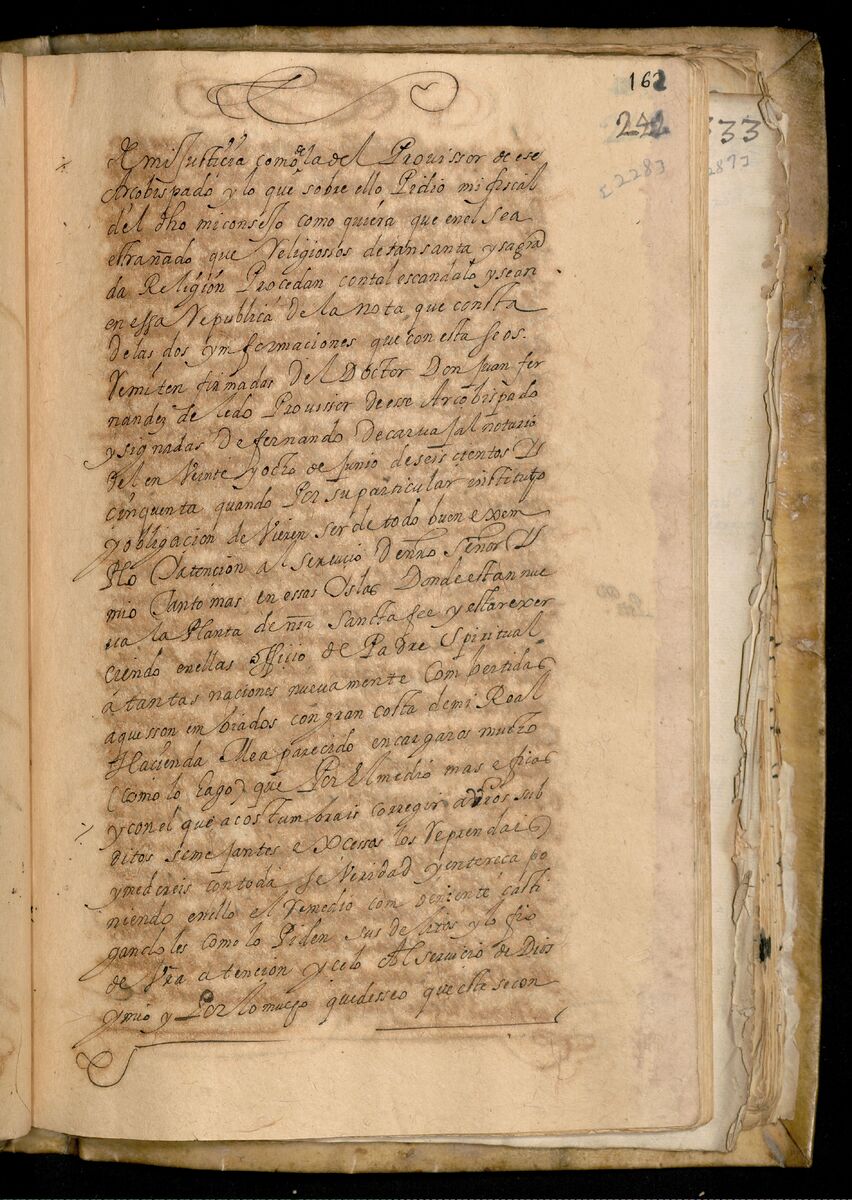 162
242
333
2283
2873
de mi Justicia como de la del Provissor de ese
Arcobispado y lo que sobre ello Pidio mi fiscal
del dho mi consejo como quiera que en el sea
estrañado que Religiossos de tan santa y sagra
da Religion Procedan con tal escandalo y sean
en essa Republica de la nota que consta
de las dos ynformaciones que con esta se os
Remiten firmadas del Doctor Don Juan fer
nandez de ledo Provissor de ese Arcobispado
y signadas de fernando de caruajal notario
del en Veinte y ocho de Junio de seiscientos y
cinquenta quando Por su particular instituto
y obligacion devieren ser de todo buen exem
plo y atencion al seruicio de nro Señor y
mio tanto mas en essas Yslas Donde estan nue
ua la Planta de nra Sancta fee y estar exer
ciendo en ellas officio de Padre Spiritual
á tantas naciones nueuamente combertidas
a que sson embiados con gran costa de mi Real
Hacienda Mea parecido encargaros mucho
(como lo hago) que Por El medio mas eficas
y con el que acostumbrais corregir a vros sub
ditos semejantes excessos los Reprendais
y medereis con toda seVeridad y entereca po
niendo en ello el Remedio combeniente casti
gandoles como lo Piden sus delitos y lo fio
de Vra atencion y celo Al seruicio de Dios
y mio y Por lo mucho que desseo que este se con